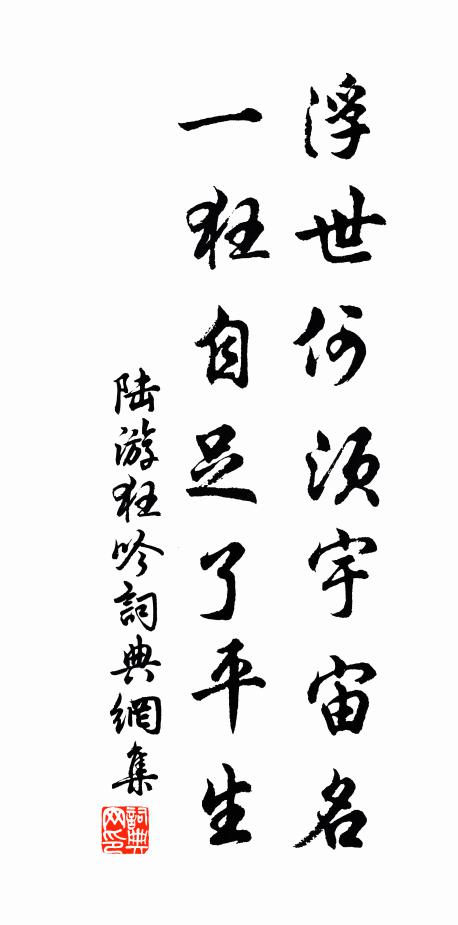 浮世何須宇宙名
一狂自足了平生
陆游狂吟詞典網集
詞典网印